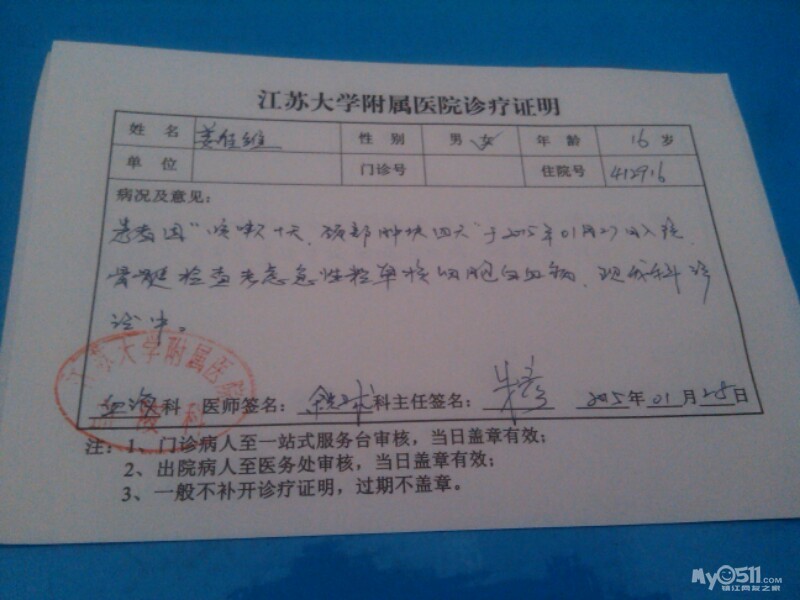 江苏大学附属医院诊疗证明
姓名 姜佳维 性别 男 女 年龄 16 岁
单位 门诊号 住院号 412916
病况及意见:
患者因"咳嗽十天、颈部肿块四天"于2015年01月27日入院,
骨髓检查考虑急性粒单核细胞白血病,现我科诊
治中。
江苏大学附属医院
血液科 医师签名: 科主任签名: 朱彦 2015年01月28日
注:1、门诊病人至一站式服务台审核,当日盖章有效;
2、出院病人至医务处审核,当日盖章有效;
3、一般不补开诊疗证明,过期不盖章。
My0511.COM
镇江网友之家